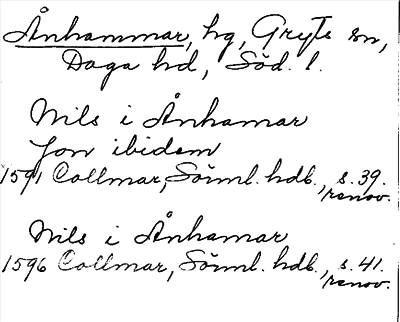 Ånhammar, hg, Gryts sn,
Daga hd, Söd. l.
Nils i Ånhamar
Jon ibidem
1591 Collmar, Sörml. hdb., s. 39.
renov.
Nils i Ånhamar
1596 Collmar, Sörml. hdb., s. 41.
renov.